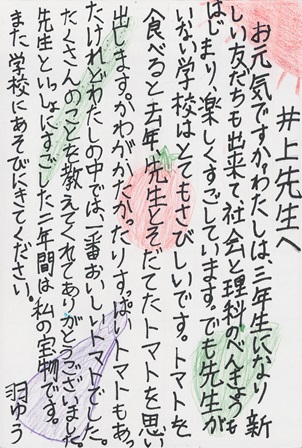 井上先生へ
お元気ですか。わたしは、三年生になり新
しい友だちも出来て、社会と理科のべんきょうも
はじまり、楽しくすごしています。でも先生が
いない学校はとてもさびしいです。トマトを
食べると去年、先生とそだてたトマトを思い
出します。かわがかたかったりすっぱいトマトもあっ
たけれどわたしの中では、一番おいしいトマトでした。
たくさんのことを教えてくれてありがとうございました。
先生といっしょにすごした二年間は私の宝物です。
また学校にあそびにきてください。
羽ゆう